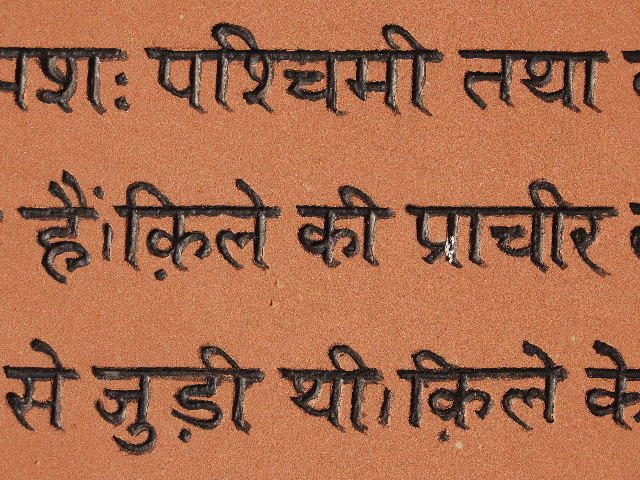 मशः पश्चिमी तथा
हैं। क़िले की प्राचीर
से जुड़ी थी। क़िले के